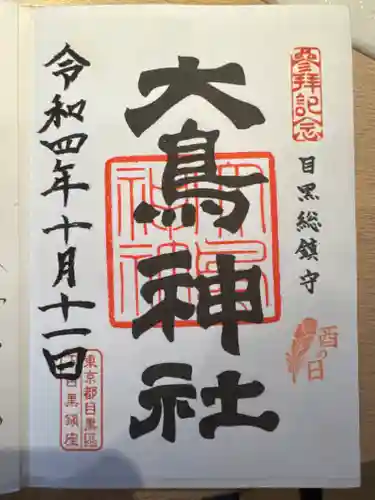 參拝記念
目黒総鎮守
酉の日
大鳥神社
東京都目黒區
下目黒鎮座
令和四年十月十一日